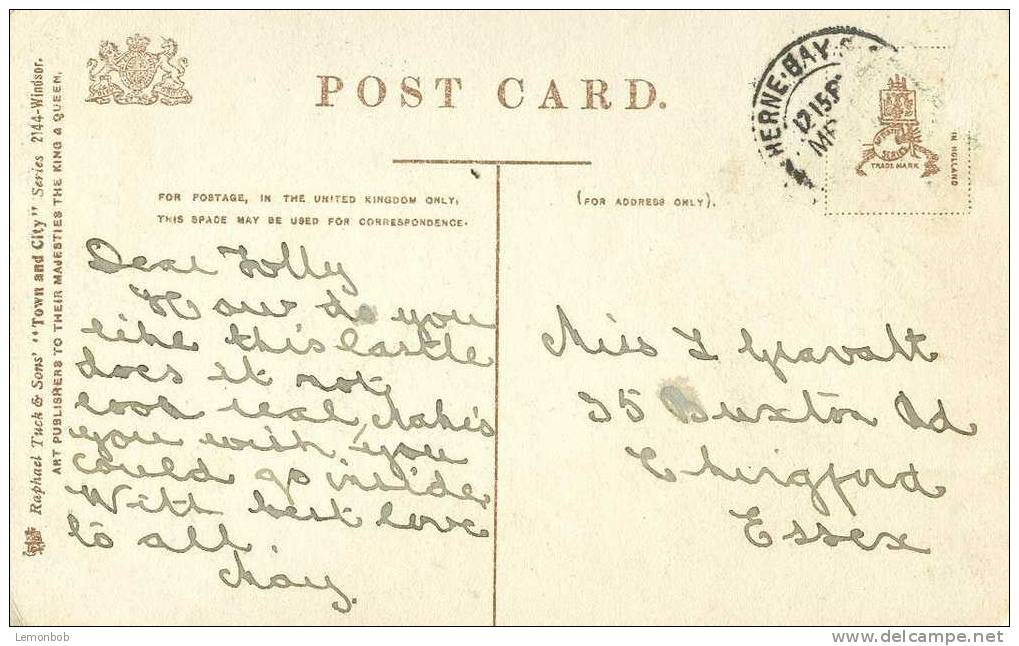 Raphael Tuck & Sons' "Town and City" Series 2144-Windsor.
ART PUBLISHERS TO THEIR MAJESTIES THE KING & QUEEN.
POST CARD.
HERNE·BAY
12 15 P
IN HOLLAND
SERIES
TRADE MARK
FOR POSTAGE, IN THE UNITED KINGDOM ONLY,
THIS SPACE MAY BE USED FOR CORRESPONDENCE.
(FOR ADDRESS ONLY).
Dear Folly
How do you
like this castle
does it not
look real, Makes
you wish you
could go inside
With best love
to all.
May.
Miss F Gravatt
35 Buxton Rd
Chingford
Essex
Lemonbob
delcampe.net